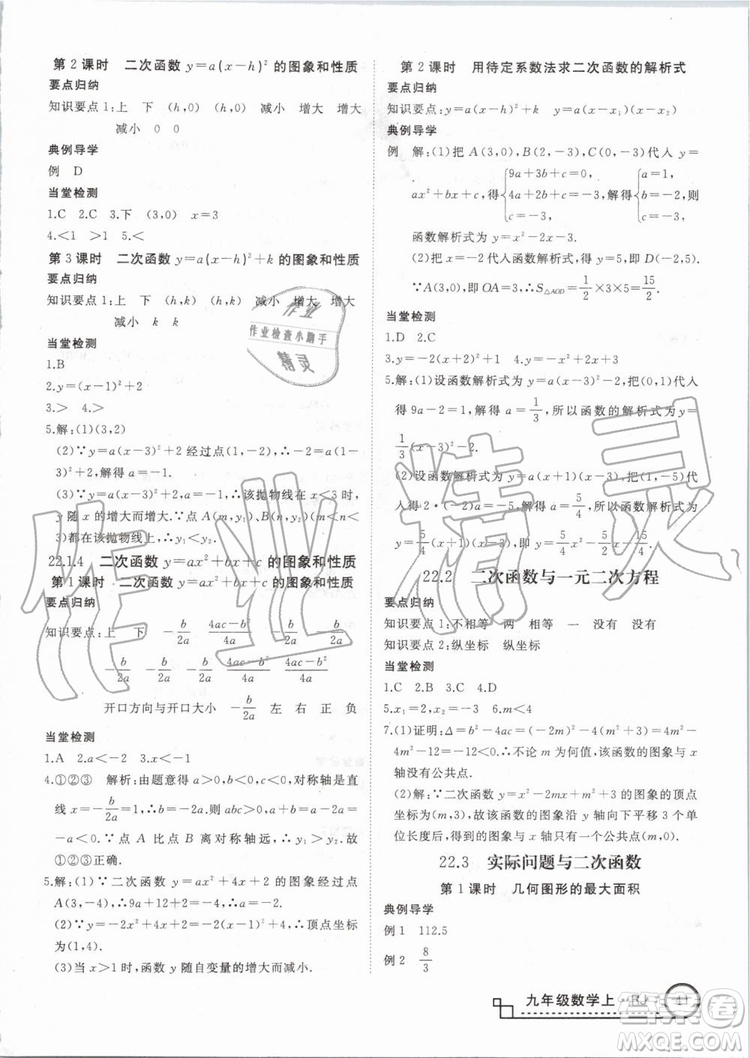 第2课时 二次函数 y=a(x-h)²的图象和性质
要点归纳
知识要点1:上 下 (h,0) (h,0) 减小 增大 增大
减小 0 0
典例导学
例 D
当堂检测
1.C 2.C 3.下 (3,0) x=3
4.<1 >1 5.<
第3课时 二次函数 y=a(x-h)²+k 的图象和性质
要点归纳
知识要点1:上 下 (h,k) (h,k) 减小 增大 增大
减小 k k
当堂检测
1.B
2.y=(x-1)²+2
3.> 4.>
5.解:(1)(3,2)
(2)∵y=a(x-3)²+2经过点(1,-2),∴-2=a(1-3)²+2,解得a=-1.
(3)∵y=a(x-3)²+2,∴该抛物线在对称轴左侧
y随x的增大而增大.又∵点A(m,y₁),B(n,y₂)(m<n<
3)都在该抛物线上,∴y₁<y₂.
22.1.4 二次函数 y=ax²+bx+c 的图象和性质
第1课时 二次函数 y=ax²+bx+c 的图象和性质
要点归纳
知识要点:上 下 -b/2a (4ac-b²)/4a
-b/2a -b/2a (4ac-b²)/4a (4ac-b²)/4a
开口方向与开口大小 -b/2a 左 右 正 负
当堂检测
1.A 2.a<-2 3.x<-1
4.①②③ 解析:由题意可得a>0,b<0,c<0,对称轴是直
线x=-b/2a=1,∴b=-2a,∴a+b>b+c.∴①②③正确.
5.解:(1)∵二次函数y=ax²+4x+2的图象经过点A
(3,-4),∴9a+12+2=-4,∴a=-2.
(2)∵y=-2x²+4x+2=-2(x-1)²+4,∴顶点坐标
为(1,4).
(3)当x>1时,函数y随自变量的增大而减小.
第2课时 用待定系数法求二次函数的解析式
要点归纳
知识要点:y=a(x-h)²+k y=a(x-x₁)(x-x₂)
典例导学
例 解:(1)把A(3,0),B(2,-3),C(0,-3)代入y=
ax²+bx+c,得{9a+3b+c=0, 4a+2b+c=-3, c=-3,解得{a=1, b=-2, c=-3.∴
函数解析式为y=x²-2x-3.
(2)把x=-2代入函数解析式得y=5,即D(-2,5).
∵A(3,0),即OA=3,∴S△AOD=1/2×3×5=15/2.
当堂检测
1.D 2.C
3.y=-2(x+1)²+3 4.y=-x²+2x+3
5.解:(1)设函数解析式为y=a(x-3)²-2,把(0,1)代
入得9a-2=1,解得a=1/3,所以函数的解析式为y=
1/3(x-3)²-2.
(2)设函数解析式为y=a(x+1)(x-2),把(0,
代入得-2a=-5/2,解得a=5/4,所以函数的解析式为y=
5/4(x+1)(x-2),即y=5/4x²-5/4x-5/2.
22.2 二次函数与一元二次方程
要点归纳
知识要点1:不相等 两 相等 一 没有 没有
知识要点2:纵坐标 纵坐标
当堂检测
1.C 2.B 3.C 4.D
5.x₁=1,x₂=3 6.m≤4
7.(1)证明:Δ=b²-4ac=(-2m)²-4(m²+3)=4m²-
4m²-12=-12<0,∴不论m为何值,该函数的图象与x
轴没有公共点.
(2)解:∵二次函数y=x²-2mx+m²+3的图象的顶点
坐标为(m,3),故该函数的图象沿y轴向下平移3个单
位长度后,得到的函数图象与x轴只有一个公共点(m,0).
22.3 实际问题与二次函数
第1课时 几何图形的最大面积
典例导学
例1 112.5
例2 8/3
九年级数学上 RJ 41
作业
作业检查小助手
精灵
作业精灵
答案圈
MXQE.COM